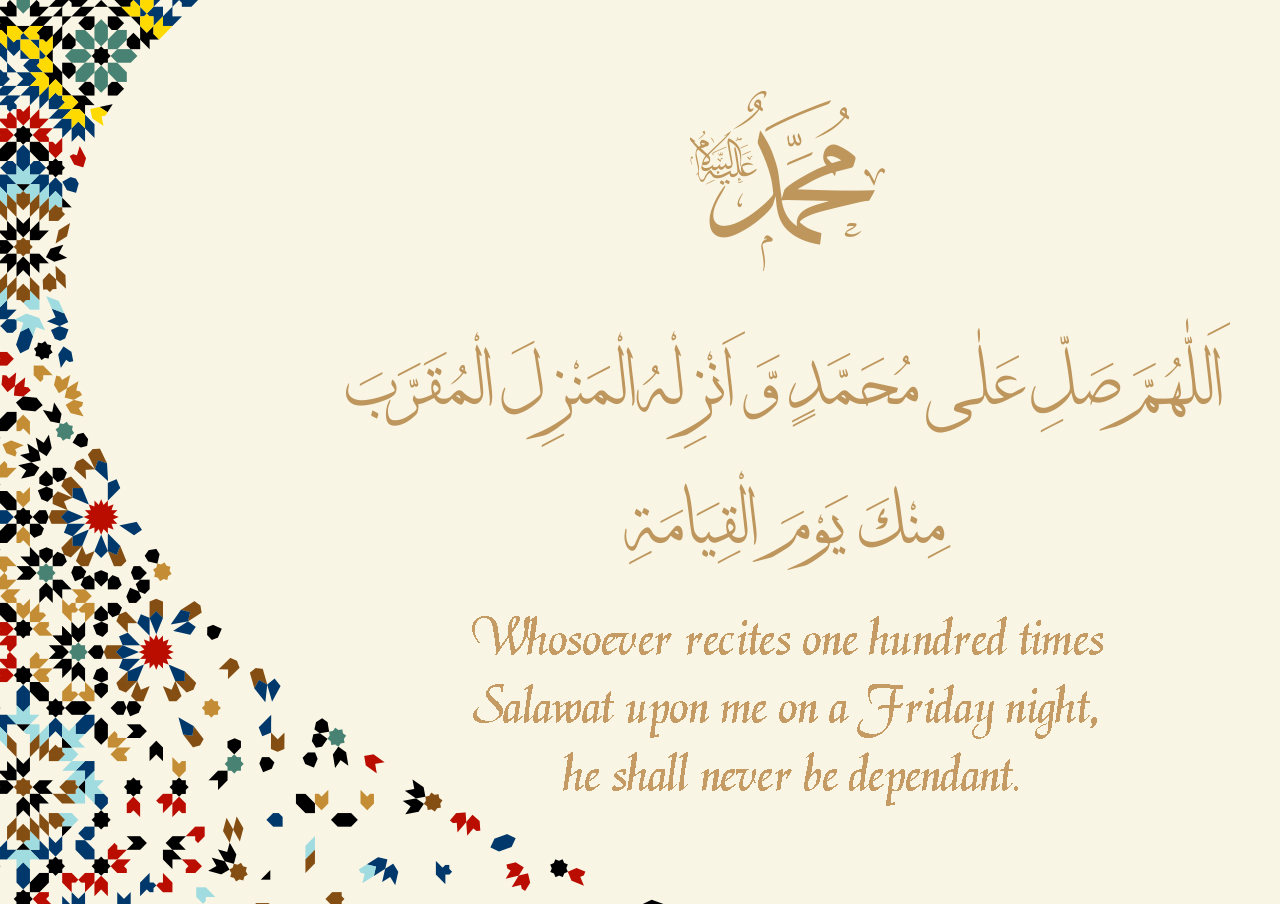 مُحَمَّدٌ عليه السلام
اَللّٰهُمَّ صَلِّ عَلٰى مُحَمَّدٍ وَّ اَنْزِلْهُ الْمَنْزِلَ الْمُقَرَّبَ
مِنْكَ يَوْمَ الْقِيَامَةِ
Whosoever recites one hundred times
Salawat upon me on a Friday night,
he shall never be dependant.